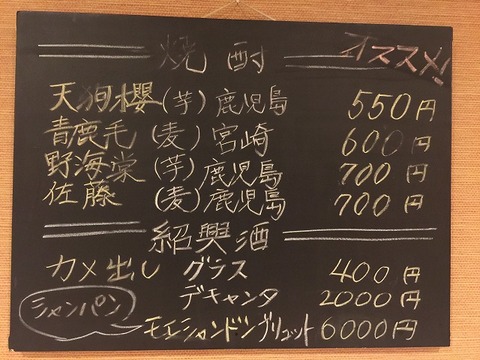 焼酎 オススメ!
天狗櫻 (芋) 鹿児島 550円
青鹿毛 (麦) 宮崎 600円
野海棠 (芋) 鹿児島 700円
佐藤 (麦) 鹿児島 700円
紹興酒
カメ出し グラス 400円
デキャンタ 2000円
シャンパン
モエシャンドンブリュット 6000円